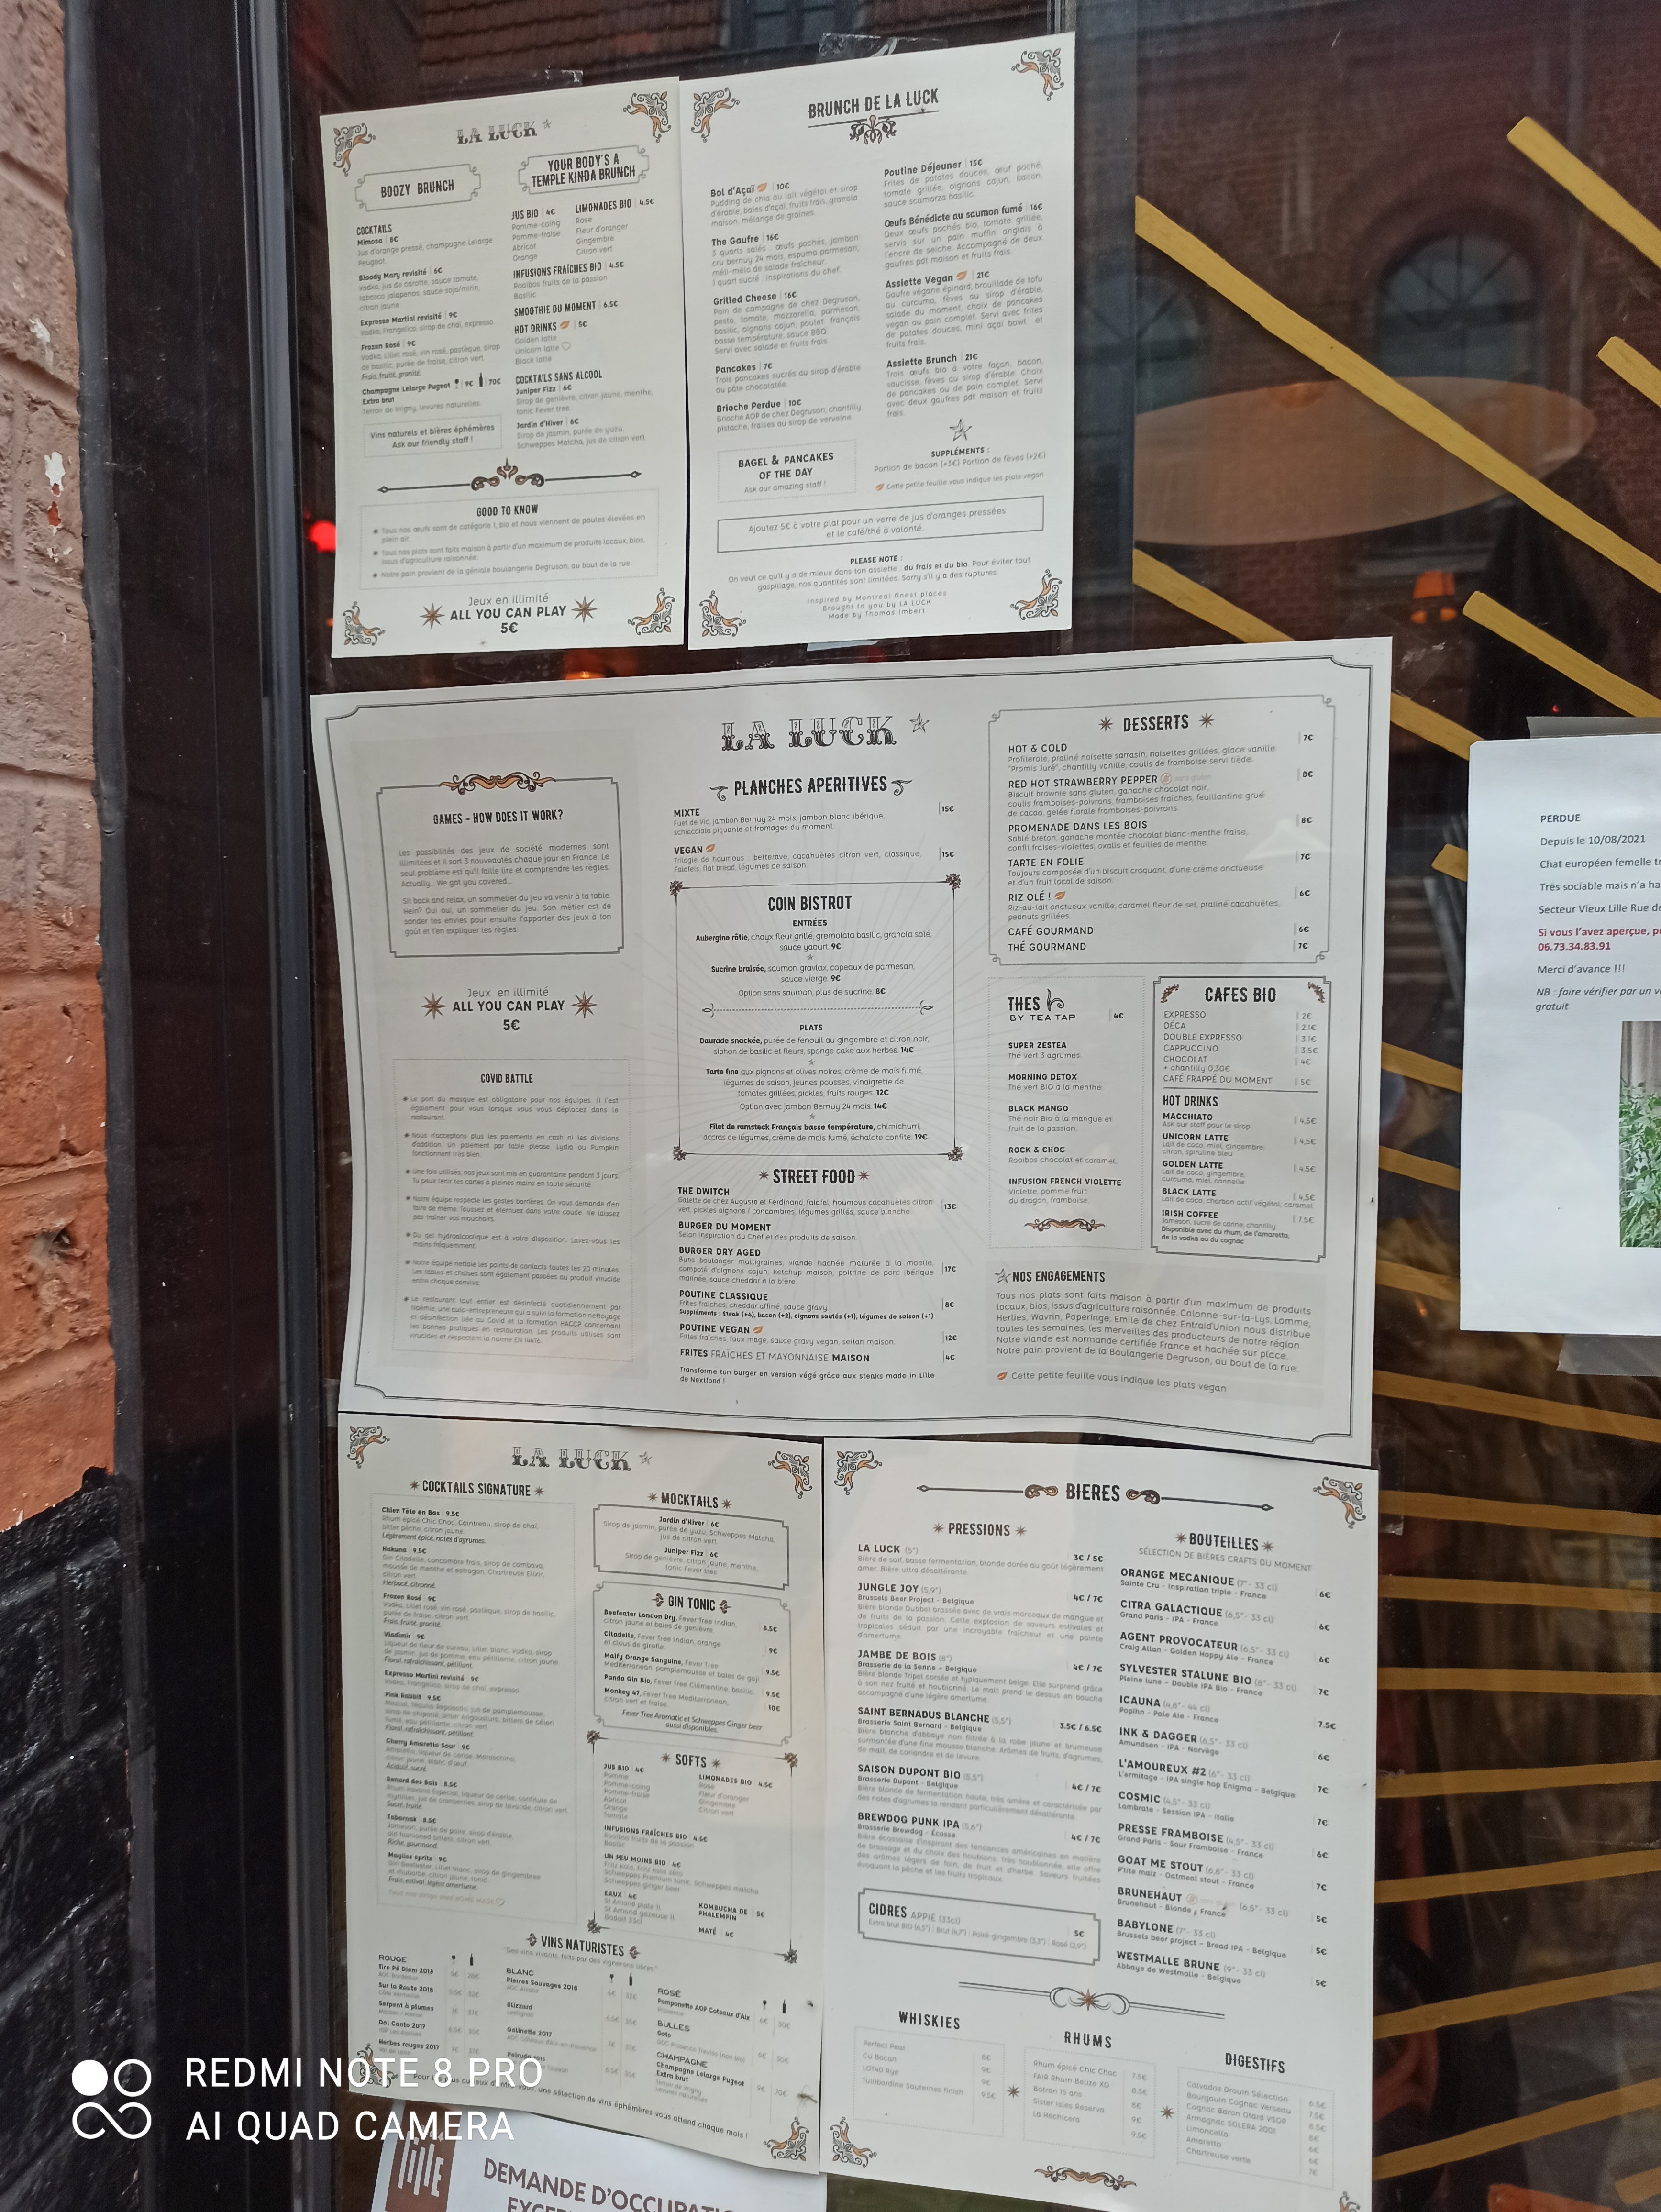 LA LUCK
BOOZY BRUNCH
COCKTAILS
Mimosa | 8€
Jus d'orange pressé, champagne Lelarge
Peugeot.
Bloody Mary revisité | 6€
Vodka, jus de carotte, sauce tomate,
tabasco jalapenos, sauce soja/mirin,
citron jaune.
Expresso Martini revisité | 9€
Vodka, Frangelico, sirop de chaï, expresso.
Frozen Rosé | 9€
Vodka, Lillet rosé, vin rosé, pastèque, sirop
de basilic, purée de fraise, citron vert.
Frais, fruité, granité.
Champagne Lelarge Pugeot | 9€ | 70€
Extra brut
Terroir de Vrigny, levures naturelles.
Vins naturels et bières éphémères
Ask our friendly staff !
YOUR BODY'S A
TEMPLE KINDA BRUNCH
JUS BIO | 4€
Pomme-coing
Pomme-fraise
Abricot
Orange
LIMONADES BIO | 4.5€
Rose
Fleur d'oranger
Gingembre
Citron vert
INFUSIONS FRAÎCHES BIO | 4.5€
Rooibos fruits de la passion
Basilic
SMOOTHIE DU MOMENT | 6.5€
HOT DRINKS | 5€
Golden latte
Unicorn latte
Black latte
COCKTAILS SANS ALCOOL
Juniper Fizz | 6€
Sirop de genièvre, citron jaune, menthe,
tonic Fever tree.
Jardin d'Hiver | 6€
Sirop de jasmin, purée de yuzu,
Schweppes Matcha, jus de citron vert.
GOOD TO KNOW
Tous nos œufs sont de catégorie 1, bio et nous viennent de poules élevées en
plein air.
Tous nos plats sont faits maison à partir d'un maximum de produits locaux, bios,
issus d'agriculture raisonnée.
Notre pain provient de la géniale boulangerie Degruson, au bout de la rue.
Jeux en illimité
ALL YOU CAN PLAY
5€
BRUNCH DE LA LUCK
Bol d'Açaï | 10€
Pudding de chia au lait végétal et sirop
d'érable, baies d'açaï, fruits frais, granola
maison, mélange de graines.
The Gaufre | 16€
3 quarts salés : œufs pochés, jambon
cru bernuy 24 mois, espuma parmesan,
méli-mélo de salade fraîcheur.
1 quart sucré : inspirations du chef.
Grilled Cheese | 16€
Pain de campagne de chez Degruson,
pesto, tomate, mozzarella, parmesan,
basilic, oignons cajun, poulet français
basse température, sauce BBQ.
Servi avec salade et fruits frais.
Pancakes | 7€
Trois pancakes sucrés au sirop d'érable
ou pâte chocolatée.
Brioche Perdue | 10€
Brioche AOP de chez Degruson, chantilly
pistache, fraises au sirop de verveine.
BAGEL & PANCAKES
OF THE DAY
Ask our amazing staff !
Poutine Déjeuner | 15€
Frites de patates douces, œuf poché,
tomate grillée, oignons cajun, bacon,
sauce scamorza basilic.
Œufs Bénédicte au saumon fumé | 16€
Deux œufs pochés bio, tomate grillée,
servis sur un pain muffin anglais à
l'encre de seiche. Accompagné de deux
gaufres pdt maison et fruits frais.
Assiette Vegan | 21€
Gaufre végane épinard, brouillade de tofu
au curcuma, fèves au sirop d'érable,
salade du moment, choix de pancakes
vegan ou pain complet. Servi avec frites
de patates douces, mini açaï bowl et
fruits frais.
Assiette Brunch | 21€
Trois œufs bio à votre façon, bacon,
saucisse, fèves au sirop d'érable. Choix
de pancakes ou de pain complet. Servi
avec deux gaufres pdt maison et fruits
frais.
SUPPLÉMENTS :
Portion de bacon (+3€) Portion de fèves (+2€)
Cette petite feuille vous indique les plats vegan
Ajoutez 5€ à votre plat pour un verre de jus d'oranges pressées
et le café/thé à volonté.
PLEASE NOTE :
On veut ce qu'il y a de mieux dans ton assiette : du frais et du bio. Pour éviter tout
gaspillage, nos quantités sont limitées. Sorry s'il y a des ruptures.
Inspired by Montreal finest places
Brought to you by LA LUCK
Made by Thomas Imbert
GAMES - HOW DOES IT WORK?
Les possibilités des jeux de société modernes sont
illimitées et il sort 3 nouveautés chaque jour en France. Le
seul problème est qu'il faille lire et comprendre les règles.
Actually... We got you covered...
Sit back and relax, un sommelier du jeu va venir à ta table.
Hein? Oui oui, un sommelier du jeu. Son métier est de
sonder tes envies pour ensuite t'apporter des jeux à ton
goût et t'en expliquer les règles.
Jeux en illimité
ALL YOU CAN PLAY
5€
COVID BATTLE
Le port du masque est obligatoire pour nos équipes. Il l'est
également pour vous lorsque vous vous déplacez dans le
restaurant.
Nous n'acceptons plus les paiements en cash ni les divisions
d'addition, un paiement par table please. Lydia ou Pumpkin
fonctionnent très bien.
Une fois utilisés, nos jeux sont mis en quarantaine pendant 3 jours.
Tu peux tenir tes cartes à pleines mains en toute sécurité.
Notre équipe respecte les gestes barrières. On vous demande d'en
faire de même. Toussez et éternuez dans votre coude. Ne laissez
pas traîner vos mouchoirs.
Du gel hydroalcoolique est à votre disposition. Lavez-vous les
mains fréquemment.
Notre équipe nettoie les points de contacts toutes les 20 minutes.
Les tables et chaises sont également passées au produit virucide
entre chaque convive.
Le restaurant tout entier est désinfecté quotidiennement par
Noémie, une auto-entrepreneure qui a suivi la formation nettoyage
et désinfection liée au Covid et la formation HACCP concernant
les bonnes pratiques en restauration. Les produits utilisés sont
virucides et respectent la norme EN 14476.
LA LUCK
PLANCHES APERITIVES
MIXTE | 15€
Fuet de Vic, jambon Bernuy 24 mois, jambon blanc ibérique,
schiacciata piquante et fromages du moment.
VEGAN | 15€
Trilogie de houmous : betterave, cacahuètes citron vert, classique,
Falafels, flat bread, légumes de saison.
COIN BISTROT
ENTRÉES
Aubergine rôtie, choux fleur grillé, gremolata basilic, granola salé,
sauce yaourt. 9€
Sucrine braisée, saumon gravlax, copeaux de parmesan,
sauce vierge. 9€
Option sans saumon, plus de sucrine. 8€
PLATS
Daurade snackée, purée de fenouil au gingembre et citron noir,
siphon de basilic et fleurs, sponge cake aux herbes. 14€
Tarte fine aux pignons et olives noires, crème de maïs fumé,
légumes de saison, jeunes pousses, vinaigrette de
tomates grillées, pickles, fruits rouges. 12€
Option avec jambon Bernuy 24 mois. 14€
Filet de rumsteck Français basse température, chimichurri,
accras de légumes, crème de maïs fumé, échalote confite. 19€
STREET FOOD
THE DWITCH | 13€
Galette de chez Auguste et Ferdinand, falafel, houmous cacahuètes citron
vert, pickles oignons / concombres, légumes grillés, sauce blanche.
BURGER DU MOMENT
Selon inspiration du Chef et des produits de saison.
BURGER DRY AGED | 17€
Buns boulanger multigraines, viande hachée maturée à la moelle,
compoté d'oignons cajun, ketchup maison, poitrine de porc ibérique
marinée, sauce cheddar à la bière.
POUTINE CLASSIQUE | 8€
Frites fraîches, cheddar affiné, sauce gravy.
Suppléments : Steak (+4), bacon (+2), oignons sautés (+1), légumes de saison (+1)
POUTINE VEGAN | 12€
Frites fraîches, faux mage, sauce gravy vegan, seitan maison.
FRITES FRAÎCHES ET MAYONNAISE MAISON | 4€
Transforme ton burger en version végé grâce aux steaks made in Lille
de Nextfood !
DESSERTS
HOT & COLD | 7€
Profiterole, praliné noisette sarrasin, noisettes grillées, glace vanille
"Promis Juré", chantilly vanille, coulis de framboise servi tiède.
RED HOT STRAWBERRY PEPPER sans gluten | 8€
Biscuit brownie sans gluten, ganache chocolat noir,
coulis framboises-poivrons, framboises fraîches, feuillantine grué
de cacao, gelée florale framboises-poivrons.
PROMENADE DANS LES BOIS | 8€
Sablé breton, ganache montée chocolat blanc-menthe fraise,
confit fraises-violettes, oxalis et feuilles de menthe.
TARTE EN FOLIE | 7€
Toujours composée d'un biscuit croquant, d'une crème onctueuse
et d'un fruit local de saison.
RIZ OLÉ ! | 6€
Riz-au-lait onctueux vanille, caramel fleur de sel, praliné cacahuètes,
peanuts grillées.
CAFÉ GOURMAND | 6€
THÉ GOURMAND | 7€
THES
BY TEA TAP | 4€
SUPER ZESTEA
Thé vert 3 agrumes.
MORNING DETOX
Thé vert BIO à la menthe.
BLACK MANGO
Thé noir Bio à la mangue et
fruit de la passion.
ROCK & CHOC
Rooibos chocolat et caramel.
INFUSION FRENCH VIOLETTE
Violette, pomme fruit
du dragon, framboise.
CAFES BIO
EXPRESSO | 2€
DÉCA | 2.1€
DOUBLE EXPRESSO | 3.1€
CAPPUCCINO | 3.5€
CHOCOLAT | 4€
+ chantilly 0,30€
CAFÉ FRAPPÉ DU MOMENT | 5€
HOT DRINKS
MACCHIATO | 4,5€
Ask our staff pour le sirop
UNICORN LATTE | 4,5€
Lait de coco, miel, gingembre,
citron, spiruline bleu
GOLDEN LATTE | 4,5€
Lait de coco, gingembre,
curcuma, miel, cannelle
BLACK LATTE | 4,5€
Lait de coco, charbon actif végétal, caramel
IRISH COFFEE | 7.5€
Jameson, sucre de canne, chantilly
Disponible avec du rhum, de l'amaretto,
de la vodka ou du cognac
NOS ENGAGEMENTS
Tous nos plats sont faits maison à partir d'un maximum de produits
locaux, bios, issus d'agriculture raisonnée. Calonne-sur-la-Lys, Lomme,
Herlies, Wavrin, Poperinge, Emile de chez Entraid'Union nous distribue
toutes les semaines, les merveilles des producteurs de notre région.
Notre viande est normande certifiée France et hachée sur place.
Notre pain provient de la Boulangerie Degruson, au bout de la rue.
Cette petite feuille vous indique les plats vegan
PERDUE
Depuis le 10/08/2021
Chat européen femelle
Très sociable mais n'a
Secteur Vieux Lille Rue
Si vous l'avez aperçue,
06.73.34.83.91
Merci d'avance !!!
NB : faire vérifier par un
gratuit
LA LUCK
COCKTAILS SIGNATURE
Chien Tête en Bas | 9.5€
Rhum épicé Chic Choc, Cointreau, sirop de chaï,
bitter pêche, citron jaune.
Légèrement épicé, notes d'agrumes.
Hakuna | 9.5€
Gin Citadelle, concombre frais, sirop de combava,
mousse de menthe et estragon, Chartreuse Elixir,
citron vert.
Herbacé, citronné.
Frozen Rosé | 9€
Vodka, Lillet rosé, vin rosé, pastèque, sirop de basilic,
purée de fraise, citron vert.
Frais, fruité, granité.
Vladimir | 9€
Liqueur de fleur de sureau, Lillet blanc, vodka, sirop
de jasmin, jus de pomme, eau pétillante, citron jaune.
Floral, rafraîchissant, pétillant.
Expresso Martini revisité | 9€
Vodka, Frangelico, sirop de chaï, expresso
Pink Rabbit | 9.5€
Floral, rafraîchissant, pétillant.
Cherry Amaretto Sour | 9€
Acidulé, sucré.
Renard des Bois | 8.5€
Sucré, fruité.
Tabarnak | 8.5€
Jameson, purée de poire, sirop d'érable,
old fashioned bitters, citron vert.
Riche, gourmand.
Mojilos spritz | 9€
MOCKTAILS
Jardin d'Hiver | 6€
Sirop de jasmin, purée de yuzu, Schweppes Matcha,
jus de citron vert.
Juniper Fizz | 6€
Sirop de genièvre, citron jaune, menthe,
tonic Fever tree.
GIN TONIC
Beefeater London Dry, Fever Tree Indian, | 8.5€
citron jaune et baies de genièvre.
Citadelle, Fever Tree Indian, orange | 9€
et clous de girofle.
Malfy Orange Sanguine, Fever Tree | 9.5€
Mediterranean, pomplemousse et baies de goji.
Panda Gin Bio, Fever Tree Clémentine, basilic. | 9.5€
Monkey 47, Fever Tree Mediterranean, | 10€
citron vert et fraise.
Fever Tree Aromatic et Schweppes Ginger beer
aussi disponibles.
SOFTS
JUS BIO | 4€
Pomme
Pomme-coing
Pomme-fraise
Abricot
Orange
Tomate
LIMONADES BIO | 4.5€
Rose
Fleur d'oranger
Gingembre
Citron vert
INFUSIONS FRAÎCHES BIO | 4.5€
Rooibos fruits de la passion
Basilic
UN PEU MOINS BIO | 4€
Schweppes Premium tonic, Schweppes matcha
Schweppes ginger beer
EAUX | 4€
KOMBUCHA DE | 5€
PHALEMPIN
MATÉ | 4€
VINS NATURISTES
"Des vins vivants, faits par des vignerons libres."
ROUGE
Tire Pé Diem 2018
Sur la Route 2018
Serpent à plumes
Dal Canto 2017
Herbes rouges 2017
BLANC
Pierres Sauvages 2018
Blizzard
Galinette 2017
ROSÉ
Pomponette AOP Coteaux d'Aix
Provence
BULLES
Goto
CHAMPAGNE
Champagne Lelarge Pugeot
Extra brut
une sélection de vins éphémères vous attend chaque mois !
BIERES
PRESSIONS
LA LUCK (5°) 3€ / 5€
Bière de soif, basse fermentation, blonde dorée au goût légèrement
amer. Bière ultra désaltérante.
JUNGLE JOY (5,9°) 4€ / 7€
Brussels Beer Project - Belgique
Bière blonde Dubbel brassée avec de vrais morceaux de mangue et
de fruits de la passion. Cette explosion de saveurs estivales et
tropicales séduit par une incroyable fraîcheur et une pointe
d'amertume.
JAMBE DE BOIS (8°) 4€ / 7€
Brasserie de la Senne - Belgique
Bière blonde Tripel corsée et typiquement belge. Elle surprend grâce
à son nez fruité et houblonné. Le malt prend le dessus en bouche
accompagné d'une légère amertume.
SAINT BERNADUS BLANCHE (5,5°) 3.5€ / 6.5€
Brasserie Saint Bernard - Belgique
Bière blanche d'abbaye non filtrée à la robe jaune et brumeuse
surmontée d'une fine mousse blanche. Arômes de fruits, d'agrumes,
de malt, de coriandre et de levure.
SAISON DUPONT BIO (5,5°) 4€ / 7€
Brasserie Dupont - Belgique
Bière blonde de fermentation haute, très amère et caractérisée par
des notes d'agrumes la rendant particulièrement désaltérante.
BREWDOG PUNK IPA (5,6°) 4€ / 7€
Brasserie Brewdog - Écosse
Bière écossaise s'inspirant des tendances américaines en matière
de brassage et du choix des houblons. Très houblonnée, elle offre
des arômes légers de foin, de fruit et d'herbe. Saveurs fruitées
évoquant la pêche et les fruits tropicaux.
CIDRES APPIE (33cl) 5€
Extra brut BIO (6,5°) | Brut (4,7°) | Poiré-gingembre (3,3°) | Rosé (2,9°)
BOUTEILLES
SÉLECTION DE BIÈRES CRAFTS DU MOMENT
ORANGE MECANIQUE (7° - 33 cl) | 6€
Sainte Cru - Inspiration triple - France
CITRA GALACTIQUE (6,5° - 33 cl) | 6€
Grand Paris - IPA - France
AGENT PROVOCATEUR (6,5° - 33 cl) | 6€
Craig Allan - Golden Hoppy Ale - France
SYLVESTER STALUNE BIO (8° - 33 cl) | 7€
Pleine Lune - Double IPA Bio - France
ICAUNA (4,8° - 44 cl) | 7.5€
Popihn - Pale Ale - France
INK & DAGGER (6,5° - 33 cl) | 6€
Amundsen - IPA - Norvège
L'AMOUREUX #2 (6° - 33 cl) | 7€
L'ermitage - IPA single hop Enigma - Belgique
COSMIC (4,5° - 33 cl) | 7€
Lambrate - Session IPA - Italie
PRESSE FRAMBOISE (4,5° - 33 cl) | 6€
Grand Paris - Sour Framboise - France
GOAT ME STOUT (6,8° - 33 cl) | 7€
P'tite maiz - Oatmeal stout - France
BRUNEHAUT sans gluten (6,5° - 33 cl) | 5€
Brunehaut - Blonde - France
BABYLONE (7° - 33 cl) | 5€
Brussels beer project - Bread IPA - Belgique
WESTMALLE BRUNE (9° - 33 cl) | 5€
Abbaye de Westmalle - Belgique
WHISKIES
Perfect Peat 8€
Cu Bocan 9€
LOT40 Rye 9€
Tullibardine Sauternes finish 9.5€
RHUMS
Rhum épicé Chic Choc 7.5€
FAIR Rhum Belize XO 8.5€
Botran 15 ans 8€
Sister Isles Reserva 9€
La Hechicera 9.5€
DIGESTIFS
Calvados Drouin Sélection 6.5€
Bourgouin Cognac Verseau 7.5€
Cognac Baron Otard VSOP 8.5€
Armagnac SOLERA 2001 8€
Limoncello 6€
Amaretto 6€
Chartreuse verte 7€
lille
DEMANDE D'OCCUPATI
REDMI NOTE 8 PRO
AI QUAD CAMERA